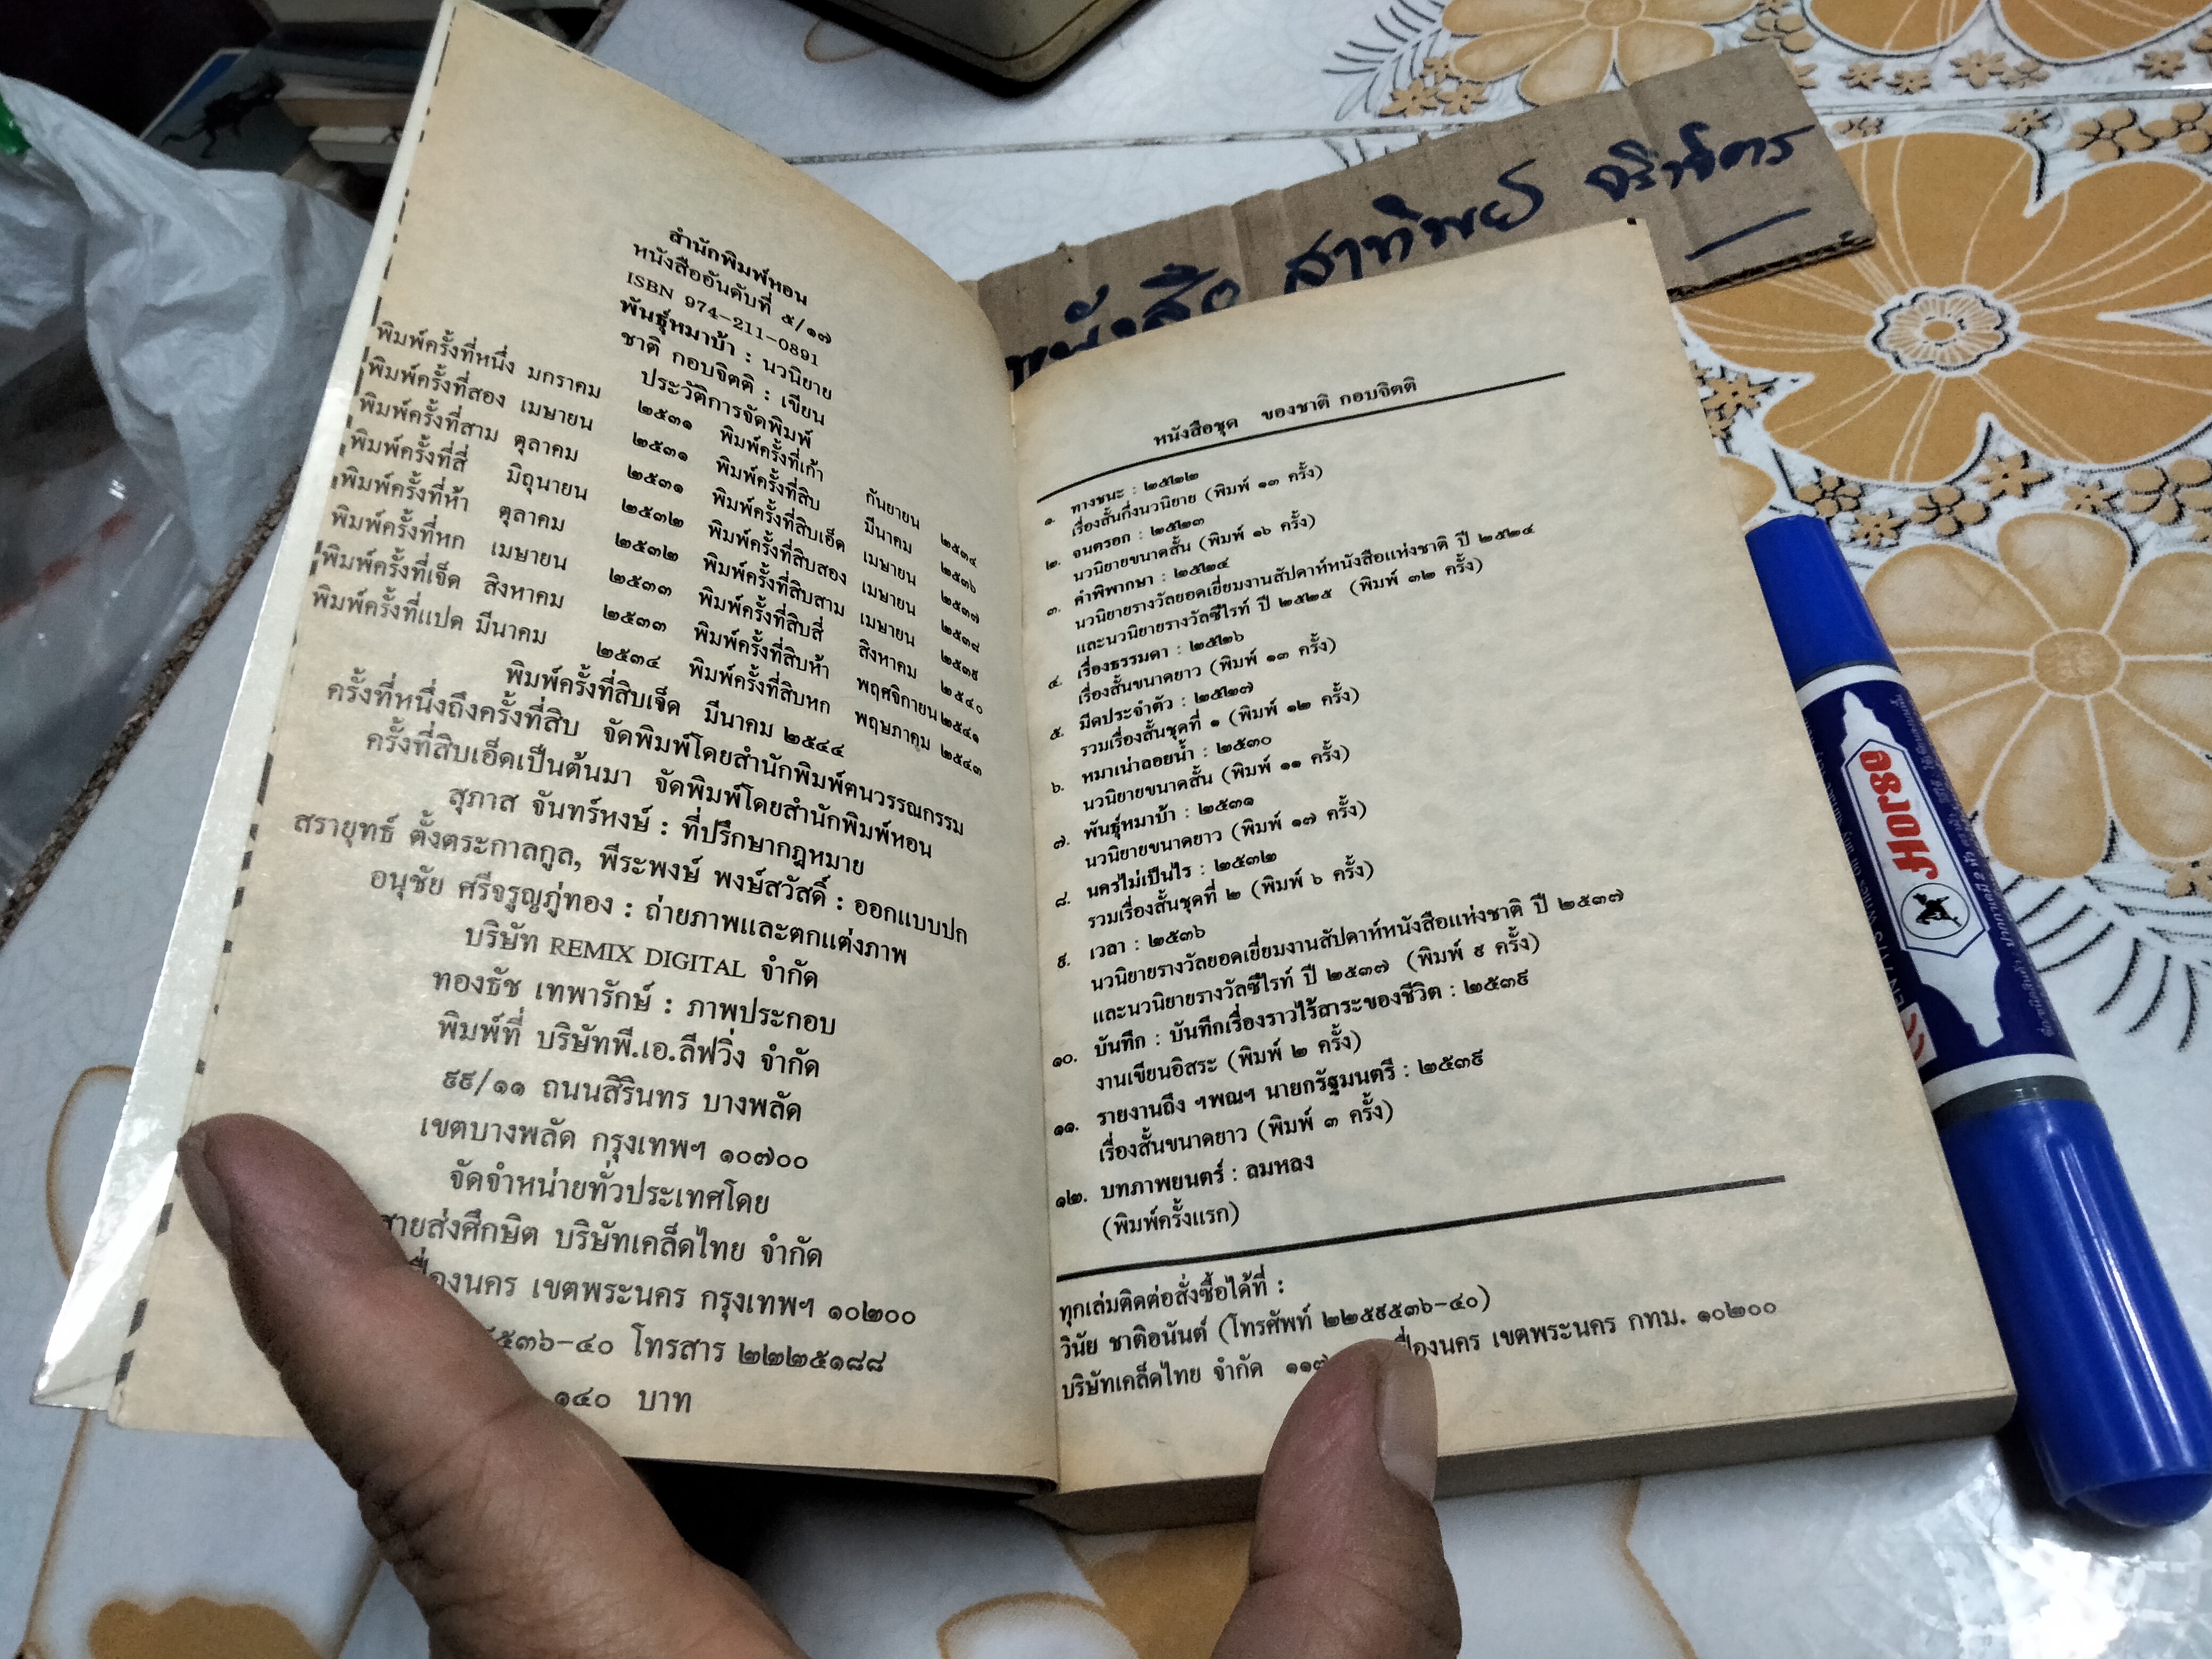 สำนักพิมพ์หอน
หนังสืออันดับที่ ๕/๑๗
ISBN 974-211-0891
พันธุ์หมาบ้า : นวนิยาย
ชาติ กอบจิตติ : เขียน
ประวัติการจัดพิมพ์
พิมพ์ครั้งที่หนึ่ง มกราคม ๒๕๓๑ พิมพ์ครั้งที่เก้า กันยายน ๒๕๓๔
พิมพ์ครั้งที่สอง เมษายน ๒๕๓๑ พิมพ์ครั้งที่สิบ มีนาคม ๒๕๓๖
พิมพ์ครั้งที่สาม ตุลาคม ๒๕๓๑ พิมพ์ครั้งที่สิบเอ็ด เมษายน ๒๕๓๗
พิมพ์ครั้งที่สี่ มิถุนายน ๒๕๓๒ พิมพ์ครั้งที่สิบสอง เมษายน ๒๕๓๘
พิมพ์ครั้งที่ห้า ตุลาคม ๒๕๓๒ พิมพ์ครั้งที่สิบสาม เมษายน ๒๕๓๙
พิมพ์ครั้งที่หก เมษายน ๒๕๓๓ พิมพ์ครั้งที่สิบสี่ สิงหาคม ๒๕๔๐
พิมพ์ครั้งที่เจ็ด สิงหาคม ๒๕๓๓ พิมพ์ครั้งที่สิบห้า พฤศจิกายน ๒๕๔๑
พิมพ์ครั้งที่แปด มีนาคม ๒๕๓๔ พิมพ์ครั้งที่สิบหก พฤษภาคม ๒๕๔๓
พิมพ์ครั้งที่สิบเจ็ด มีนาคม ๒๕๔๔
ครั้งที่หนึ่งถึงครั้งที่สิบ จัดพิมพ์โดยสำนักพิมพ์ฅนวรรณกรรม
ครั้งที่สิบเอ็ดเป็นต้นมา จัดพิมพ์โดยสำนักพิมพ์หอน
สุภาส จันทร์หงษ์ : ที่ปรึกษากฎหมาย
สรายุทธ์ ตั้งตระกาลกูล, พีระพงษ์ พงษ์สวัสดิ์ : ออกแบบปก
อนุชัย ศรีจรูญภู่ทอง : ถ่ายภาพและตกแต่งภาพ
บริษัท REMIX DIGITAL จำกัด
ทองธัช เทพารักษ์ : ภาพประกอบ
พิมพ์ที่ บริษัทพี.เอ.ลีฟวิ่ง จำกัด
๙๙/๑๑ ถนนสิรินทร บางพลัด
เขตบางพลัด กรุงเทพฯ ๑๐๗๐๐
จัดจำหน่ายทั่วประเทศโดย
สายส่งศึกษิต บริษัทเคล็ดไทย จำกัด
เขตพระนคร กรุงเทพฯ ๑๐๒๐๐
๕๓๖-๔๐ โทรสาร ๒๒๒๕๑๘๘
๑๔๐ บาท
หนังสือ สาทิพย์
หนังสือชุด ของชาติ กอบจิตติ
๑. ทางชนะ : ๒๕๒๒
เรื่องสั้นกึ่งนวนิยาย (พิมพ์ ๑๓ ครั้ง)
๒. จนตรอก : ๒๕๒๓
นวนิยายขนาดสั้น (พิมพ์ ๑๖ ครั้ง)
๓. คำพิพากษา : ๒๕๒๔
นวนิยายรางวัลยอดเยี่ยมงานสัปดาห์หนังสือแห่งชาติ ปี ๒๕๒๔
และนวนิยายรางวัลซีไรท์ ปี ๒๕๒๕ (พิมพ์ ๓๒ ครั้ง)
๔. เรื่องธรรมดา : ๒๕๒๖
เรื่องสั้นขนาดยาว (พิมพ์ ๑๓ ครั้ง)
๕. มีดประจำตัว : ๒๕๒๗
รวมเรื่องสั้นชุดที่ ๑ (พิมพ์ ๑๒ ครั้ง)
๖. หมาเน่าลอยน้ำ : ๒๕๓๐
นวนิยายขนาดสั้น (พิมพ์ ๑๑ ครั้ง)
๗. พันธุ์หมาบ้า : ๒๕๓๑
นวนิยายขนาดยาว (พิมพ์ ๑๗ ครั้ง)
๘. นครไม่เป็นไร : ๒๕๓๒
รวมเรื่องสั้นชุดที่ ๒ (พิมพ์ ๖ ครั้ง)
๙. เวลา : ๒๕๓๖
นวนิยายรางวัลยอดเยี่ยมงานสัปดาห์หนังสือแห่งชาติ ปี ๒๕๓๗
และนวนิยายรางวัลซีไรท์ ปี ๒๕๓๗ (พิมพ์ ๙ ครั้ง)
๑๐. บันทึก : บันทึกเรื่องราวไร้สาระของชีวิต : ๒๕๓๙
งานเขียนอิสระ (พิมพ์ ๒ ครั้ง)
๑๑. รายงานถึง ฯพณฯ นายกรัฐมนตรี : ๒๕๓๙
เรื่องสั้นขนาดยาว (พิมพ์ ๓ ครั้ง)
๑๒. บทภาพยนตร์ : ลมหลง
(พิมพ์ครั้งแรก)
ทุกเล่มติดต่อสั่งซื้อได้ที่ :
วินัย ชาติอนันต์ (โทรศัพท์ ๒๒๕๙๕๓๖-๔๐)
บริษัทเคล็ดไทย จำกัด เขตพระนคร กทม. ๑๐๒๐๐
Horse